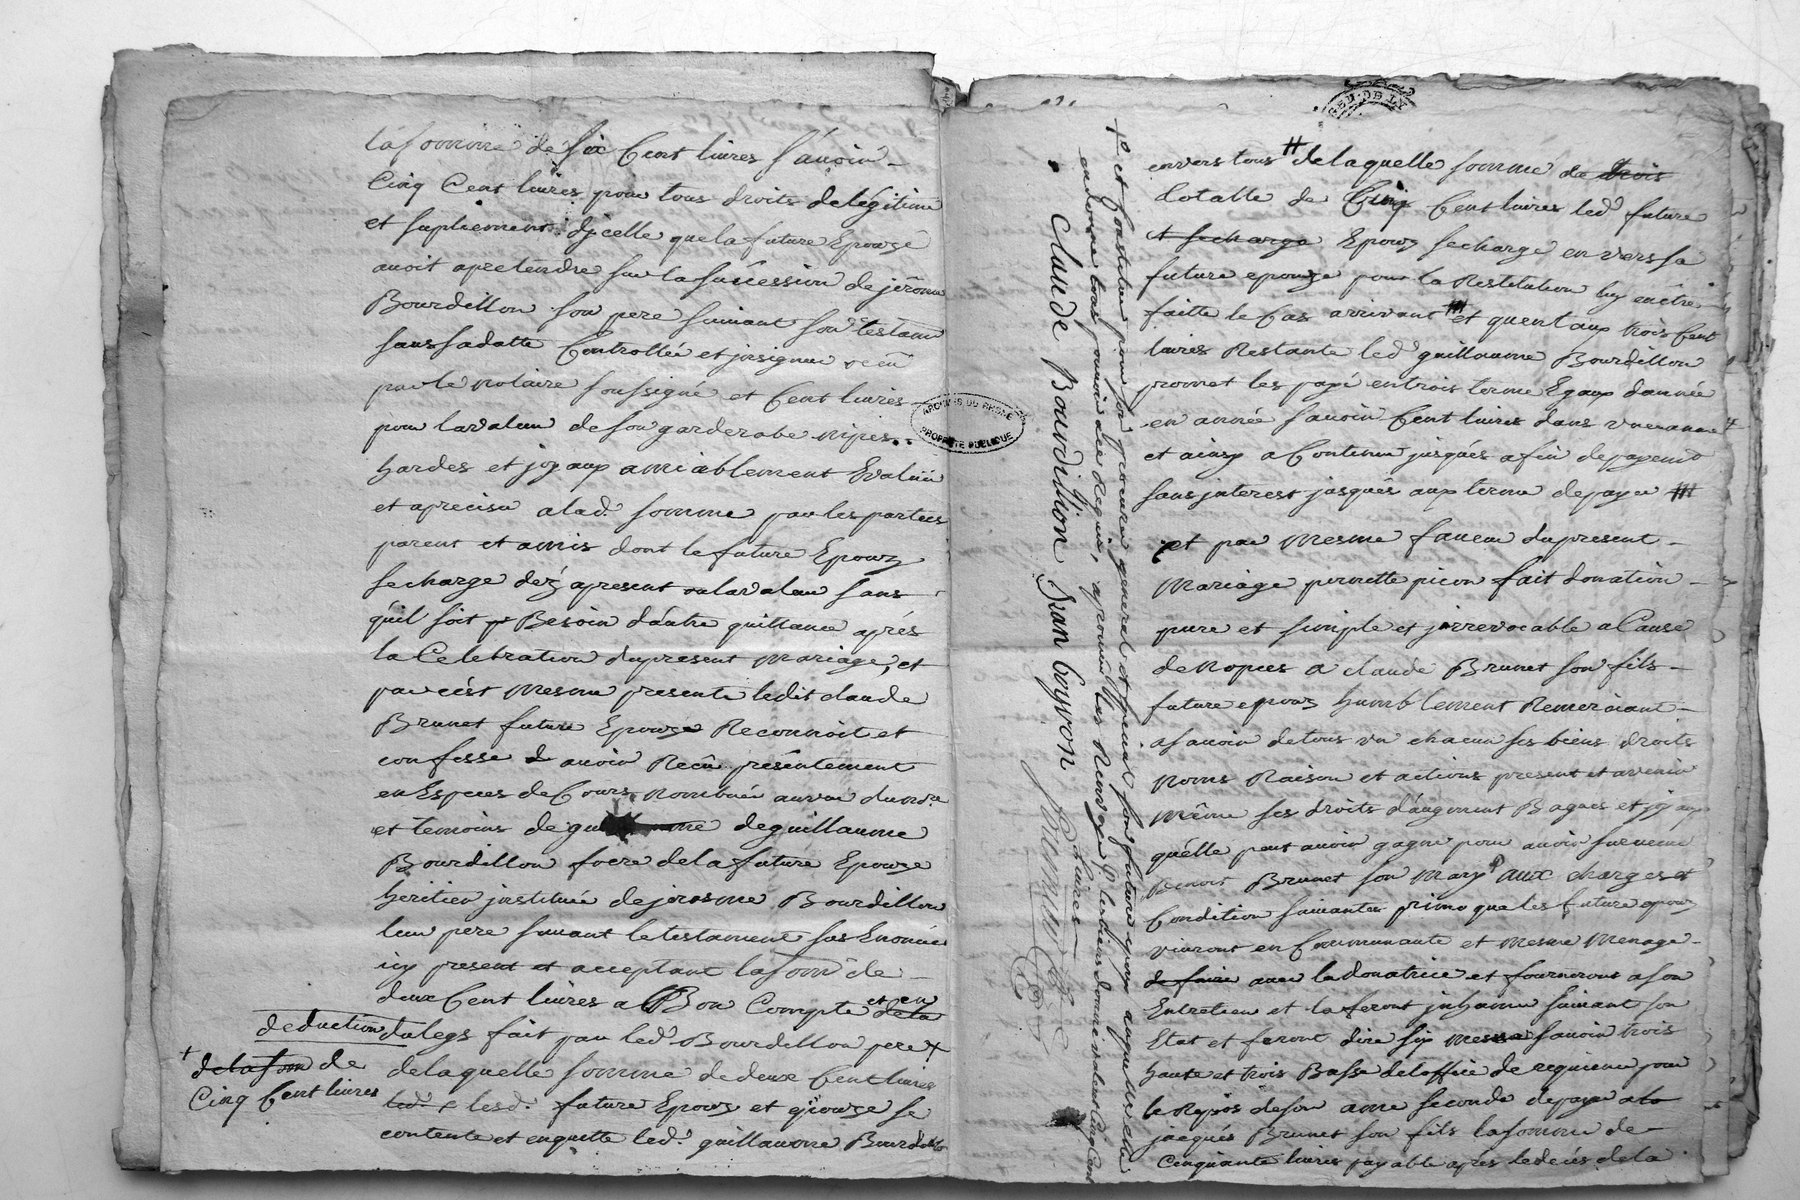 la somme de six Cent livres sávoir
Cinq Cent livres pour tous droits de légitime
et suplement djcelle que la future Epouse
avoit apretendre sur la succession de jérôme
Bourdillon son pere suivant son testam
sans sa datte Controllée et jnsignue
par le notaire soussigné et Cent livres
pour la valeur de son garderobe nipes
hardes et joyaux amiablement Evalué
et aprecisu a lad. somme par les parties
parent et amis dont le future Epoux
se charge dez apresent sans
quil soit Besoin dáutre quittance aprés
la Celebration du present Mariage, et
par cést Mesme presente ledit claude
Brunet future Epouse Reconnoit et
confesse avoir Recû présentement
en Especes de Cours nombrée au vue du no.re
et temoins de deguillaume
Bourdillon frere de la future Epouse
heritier jnstitué de jerosme Bourdillon
leur pere suivant le testament sus Enoncée
icy present et acceptant la som de
deux Cent livres a Bon Compte et en de la
deduction du legs fait par led. Bourdillon pere +
+ de la som de
Cinq Cent livres
de laquelle somme de deux Cent livres
led. lesd. future Epoux et Epouse se
contente et en quitte led. guillaume Bourdillon
+ et Constitué pour son procureur general et special son future epoux auquel elle
en donne tous pouvoir de Requis, aprouvant les Renvoye les biens donné valeur Cinq Cent
livres
claude Bourdillon jean Coyron
envers tous # de laquelle somme de trois
totalle de Cinq Cent livres led. future
et se charge Epoux se charge en vers sa
future epouze pour la Restitution luy en être
faitte le Cas arrivant et quent aux trois Cent
livres Restante led. guillaume Bourdillon
promet les payé en trois terme Egaux dánnée
en année savoir Cent livres dans une année
et ainsy a Continu jusqués afin de payemt
sans jnterest jusqués aux terme de payer #
et par Mesme faveur du present
Mariage pernette picon fait donation
pure et simple et jrrevocable a Cause
de Nopces a claude Brunet son fils
future epoux humblement Remerciant
asavoir de tous un chacun ses biens droits
Noms Raison et actions present et avenir
Même ses droits dáugment Bagues et joyaux
quélle peut avoir gagne pour avoir survecue
Benoit Brunet son Mary aux charges et
Condition suivantes primo que les future epoux
vivront en Communauté et mesme Menage
de faire avec la donatrice et fourniront a son
Entretien et la feront jnhamer suivant son
Etat et feront dire six Messe savoir trois
haute et trois Basse de loffice de requieme pour
le Repôs de son ame seconde de payer a
jacqués Brunet son fils la somme de
Cinquante livres payable aprés le decés de la
ARCHIVES DU RHONE
PROPRIÉTÉ PUBLIQUE